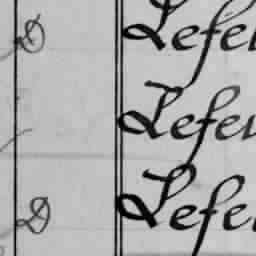 D Lefe
Lefe
D Lefe